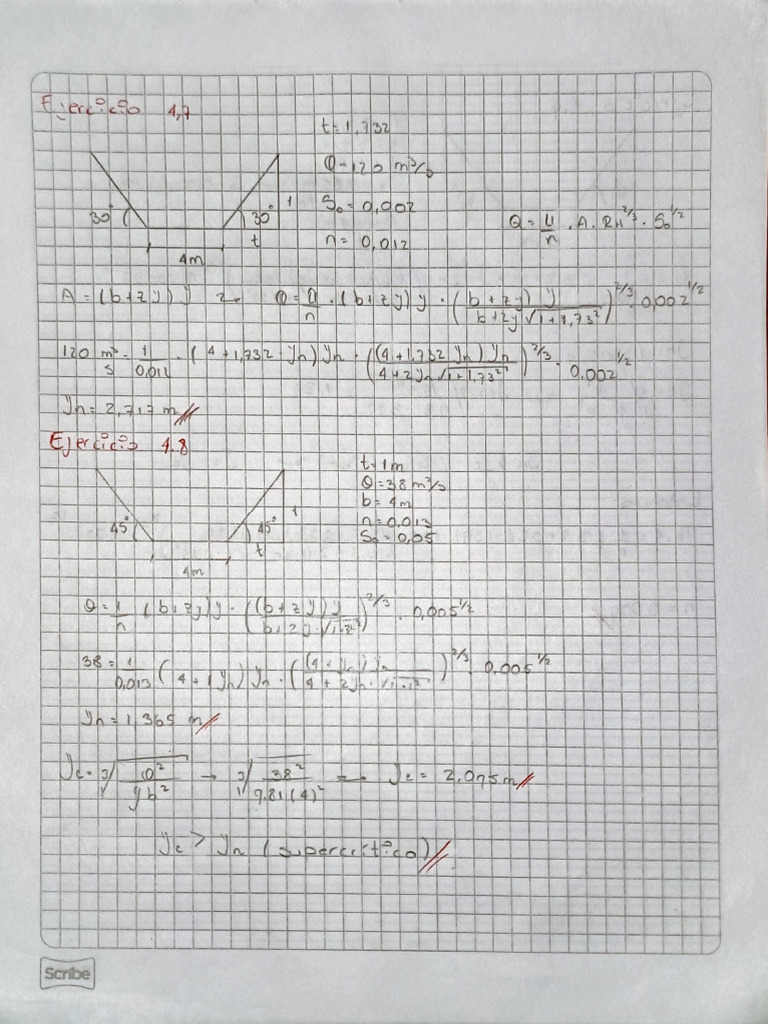 Ejercicio 4,7
t = 1,732
Q = 120 m³/s
30° 30° 1
S₀ = 0,002
Q = 1/n · A · RH^2/3 · S₀^1/2
t
n = 0,012
4m
A = (b+zy) y Q = 1/n · (b+zy) y · ((b+zy) y / b+2y √1+1,73²)^2/3 · 0,002^1/2
120 m³/s = 1/0,012 · (4+1,732·yn) yn · ((4+1,732 yn) yn / 4+2yn √1+1,73²)^2/3 · 0,002^1/2
yn = 2,717 m
Ejercicio 4.8
t = 1m
Q = 38 m³/s
b = 4m
45° 45° 1
n = 0,013
t
S₀ = 0,05
4m
Q = 1/n (b+zy) y · ((b+zy) y / b+2y √1+z²)^2/3 · 0,005^1/2
38 = 1/0,013 (4+1yn) yn · ((4+yn) yn / 4+2yn · √1+1²)^2/3 · 0,005^1/2
yn = 1,365 m
yc = ³√Q²/gb² → ³√38²/9.81(4)² → yc = 2,075m
yc > yn (supercrítico)
Scribe